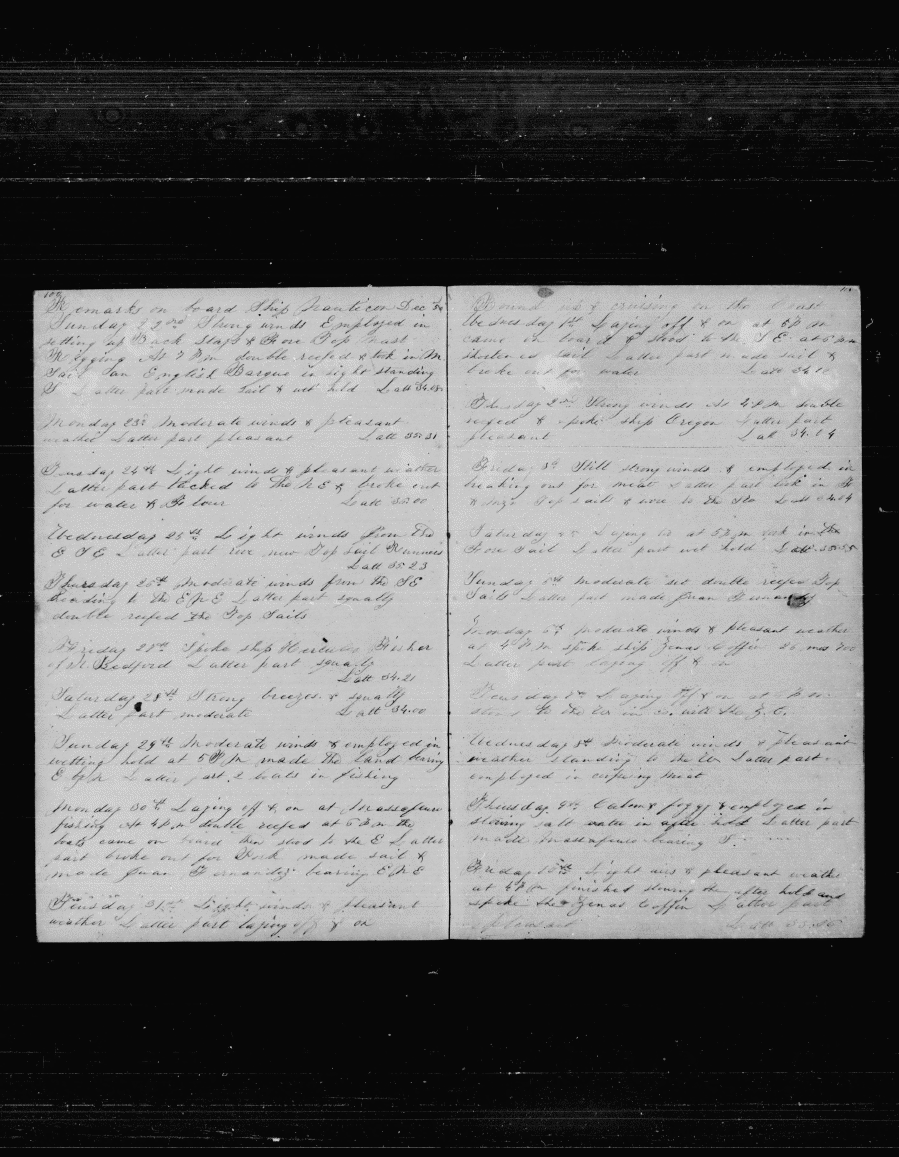 Remarks on board Ship Nauticon Dec
Sunday 22nd Strong winds Employed in
setting up Back Stays & Fore Top mast
Rigging At 7 PM double reefed & took in M
Sail Saw English Barque in sight standing
S Latter part made Sail & wet hold Latt 34.08
Monday 23d Moderate winds & pleasant
weather Latter part pleasant Latt 35.31
Tuesday 24th Light winds & pleasant weather
Latter part tacked to the NE & broke out
for water & Flour Latt 35.00
Wednesday 25th Light winds from the
ESE Latter part rove new Top sail Runners
Latt 35 23
Thursday 26th moderate winds from the SE
Heading to the ENE Latter part squally
double reefed the Top Sails
Friday 28th Spoke ship Hercules Fisher
of N. Bedford Latter part squally
Latt 34.21
Saturday 28th Strong breezes & squally
Latter part moderate Latt 34.00
Sunday 29th Moderate winds & employed in
wetting hold at 5 PM made the land bearing
E Latter part 2 boats in fishing
Monday 30th Laying off & on at Massafuero
fishing At 4 PM double reefed at 6 PM the
boats came on board then stood to the E Latter
part broke out for Pork made sail &
made Juan Fernandez bearing ENE
Tuesday 31st Light winds & pleasant
weather Latter part laying off & on
Bound in & cruising on the Coast
Wednesday 1st Laying off & on at 6 PM
came on board & stood to the SE at 8 PM
shortened sail Latter part made sail &
broke out for water Latt 34.10
Thursday 2nd Strong winds At 4 PM double
reefed & spoke ship Oregon Latter part
pleasant Latt 34.14
Friday 3d Still strong winds & employed in
breaking out for meat Latter part took in F
& Mizn Top sails & wore to the Latt 34.04
Saturday 4th Laying to at 5 PM took in the
Fore Sail Latter part wet hold Latt 33.55
Sunday 5th moderate set double reefed Top
Sails Latter part made Juan Fernandez
Monday 6th moderate winds & pleasant weather
at 4 PM spoke ship Zenas Coffin 26 mos
Latter part laying off & on
Tuesday 7th Laying off & on at 6 PM
stood to the W in co. with the Z. C.
Wednesday 8th Moderate winds & pleasant
weather standing to the W Latter part
employed in meat
Thursday 9th Calm & foggy & employed in
stowing salt water in after hold Latter part
made Massafuero bearing S.
Friday 10th Light airs & pleasant weather
at 4 PM finished stowing the after hold and
spoke the Zenas Coffin Latter part
pleasant Latt